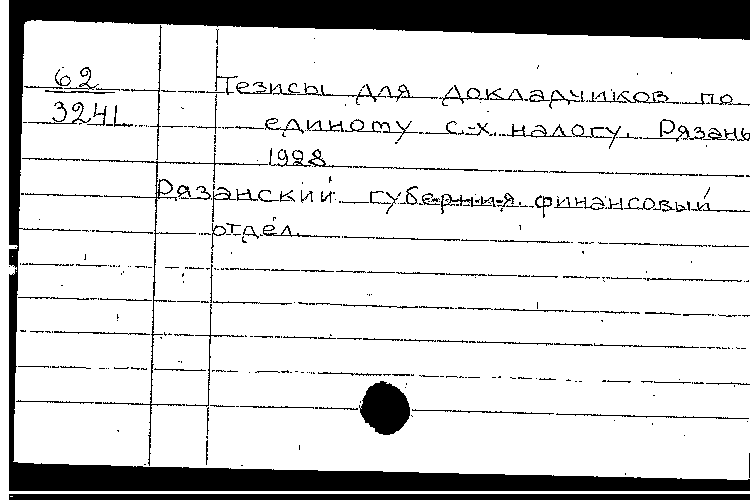 62
3241
Тезисы для докладчиков по
единому с.-х. налогу. Рязань
1928
Рязанский губерния финансовый
отдел.